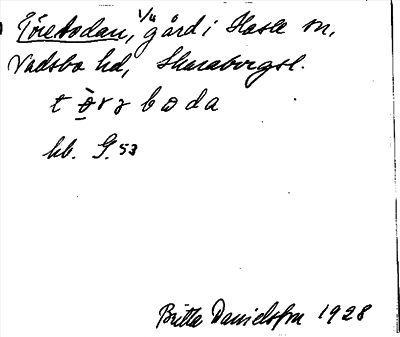 Töreboda, 1/4 gård i Hassle sn,
Vadsbo hd, Skaraborgsl.
t ö̀ r ɜ b ɷ d a
hb. G. 53
Britta Danielsson 1928